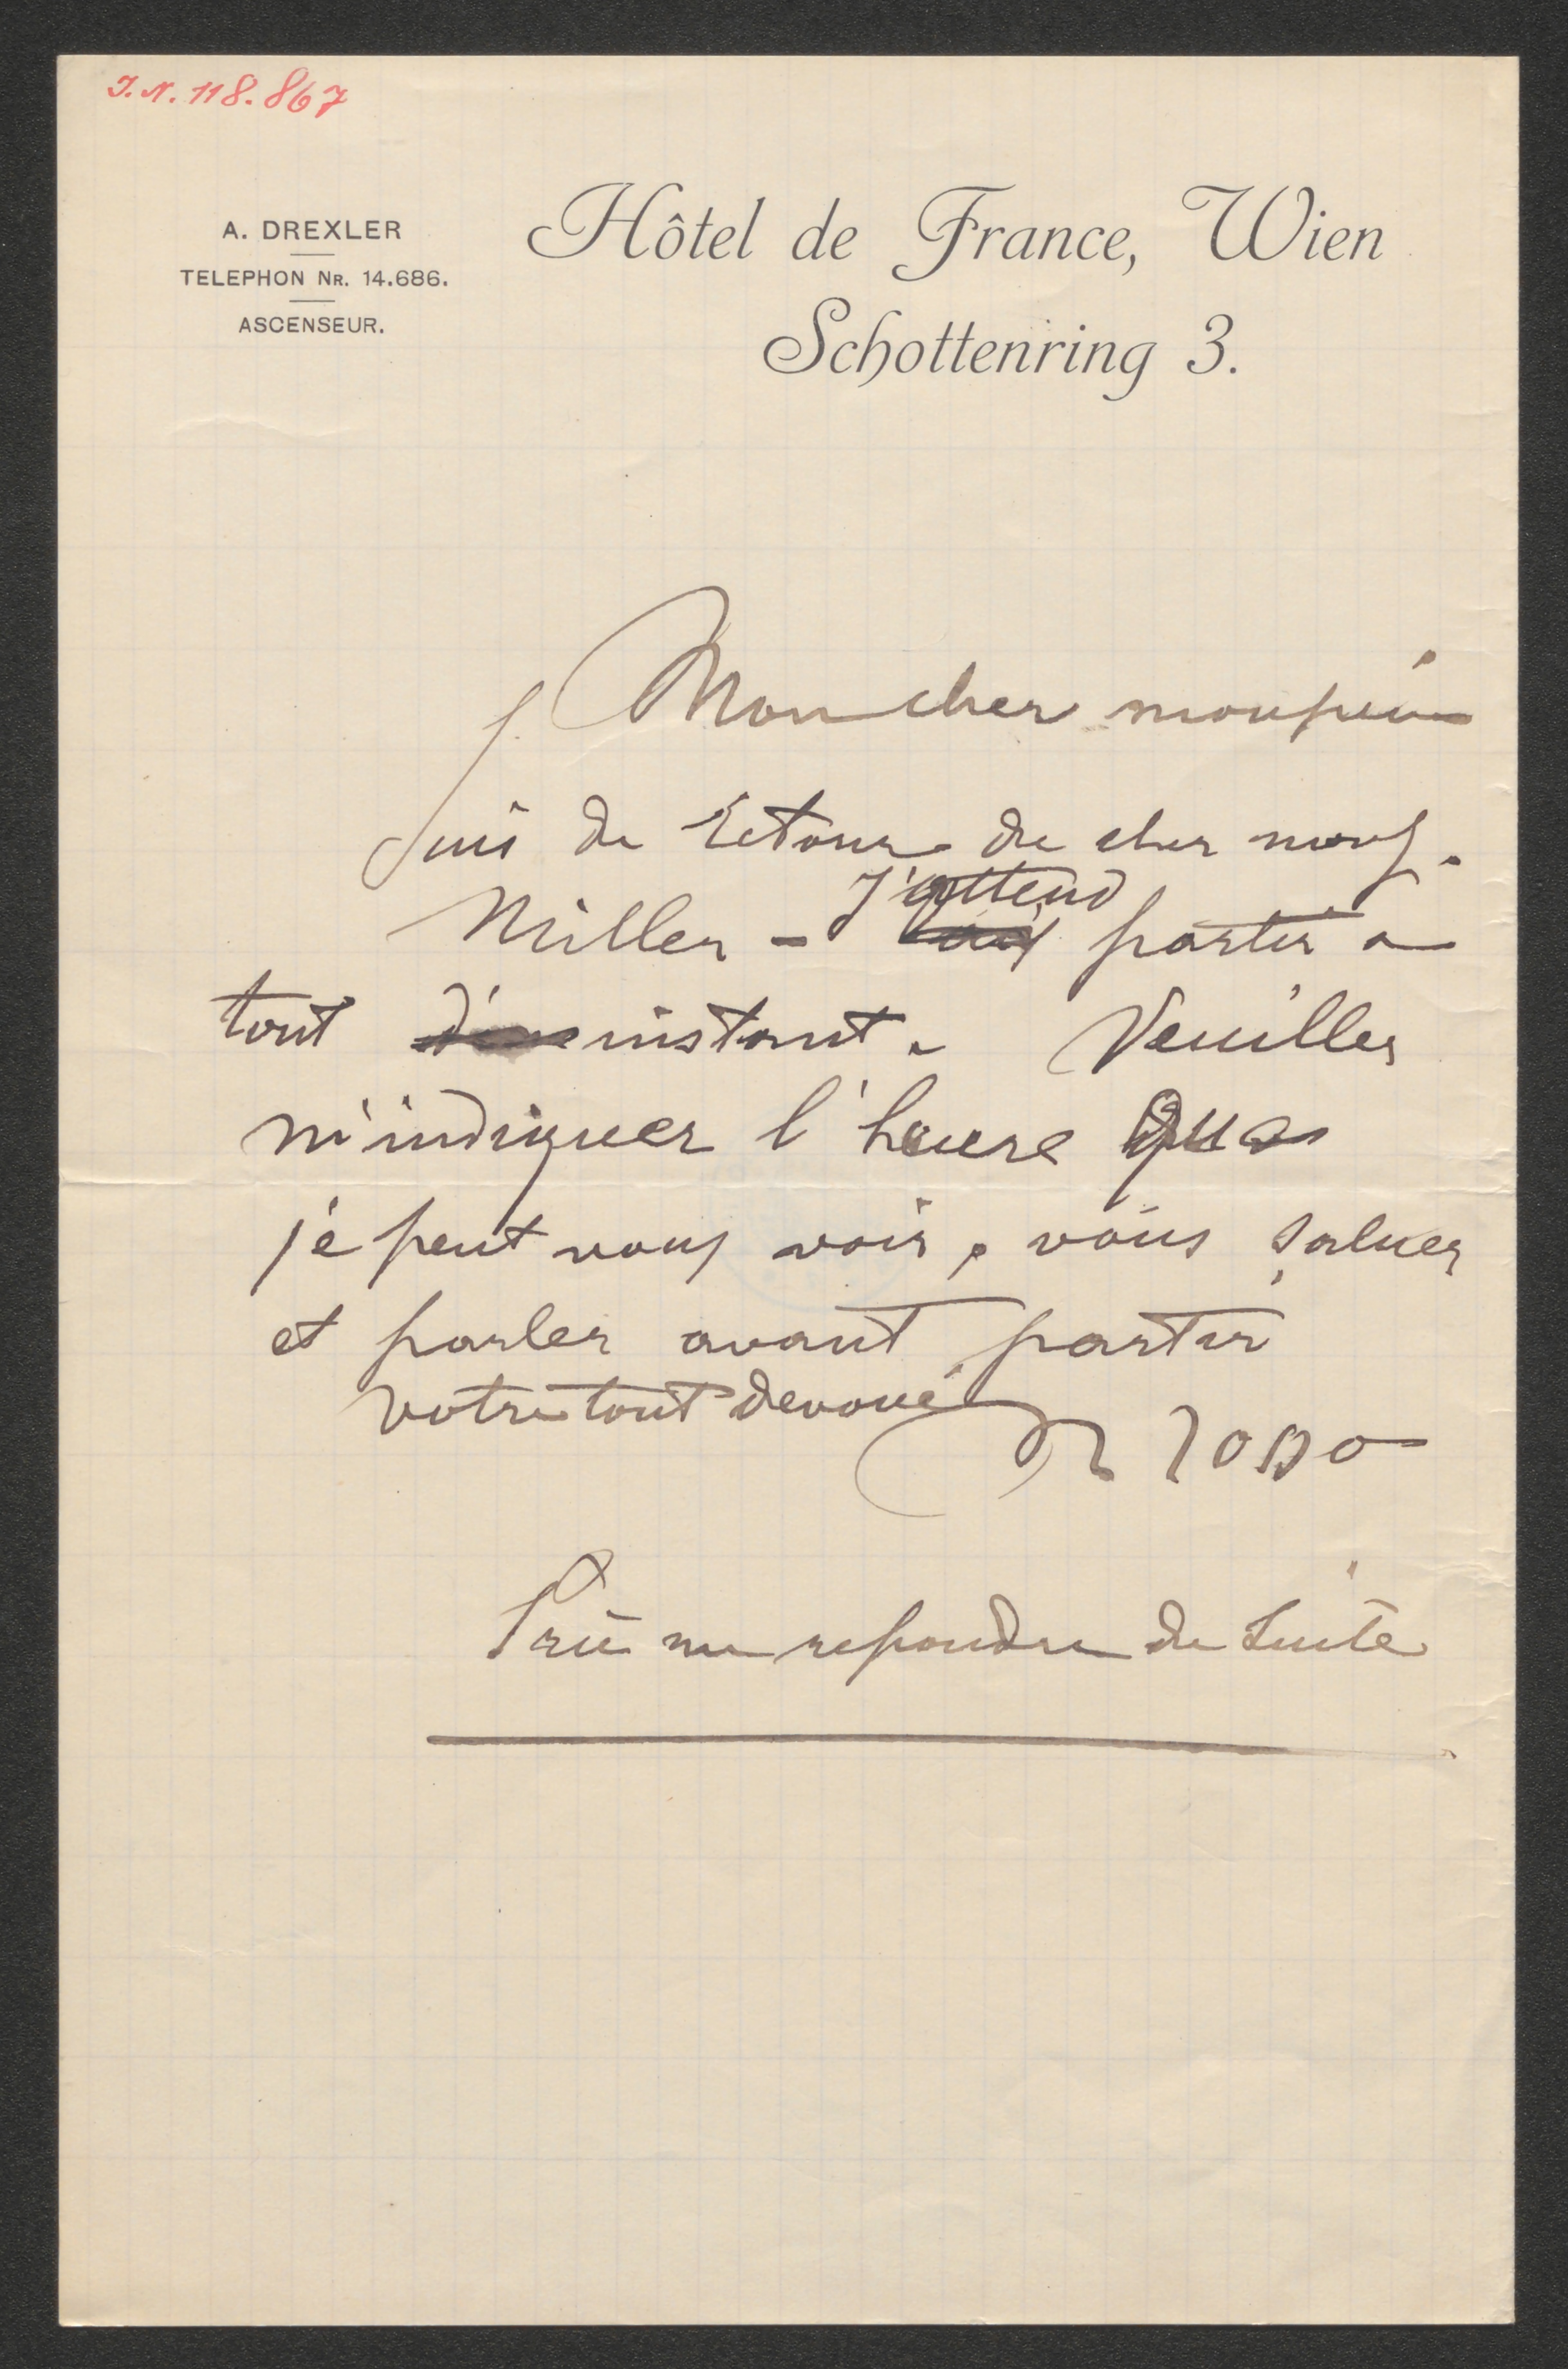 J. N. 118.867
A. DREXLER
TELEPHON NR. 14.686.
ASCENSEUR.
Hôtel de France, Wien
Schottenring 3.
Mon cher monsieur
Suis de Retour de cher mons.
Miller - J'attend partir a
tout instant. Veuillez
m'indiquer l'heure que
je peut vous voir, vous saluer
et parler avant partir
votre tout devoué
Rosso
Prié me repondre de suite